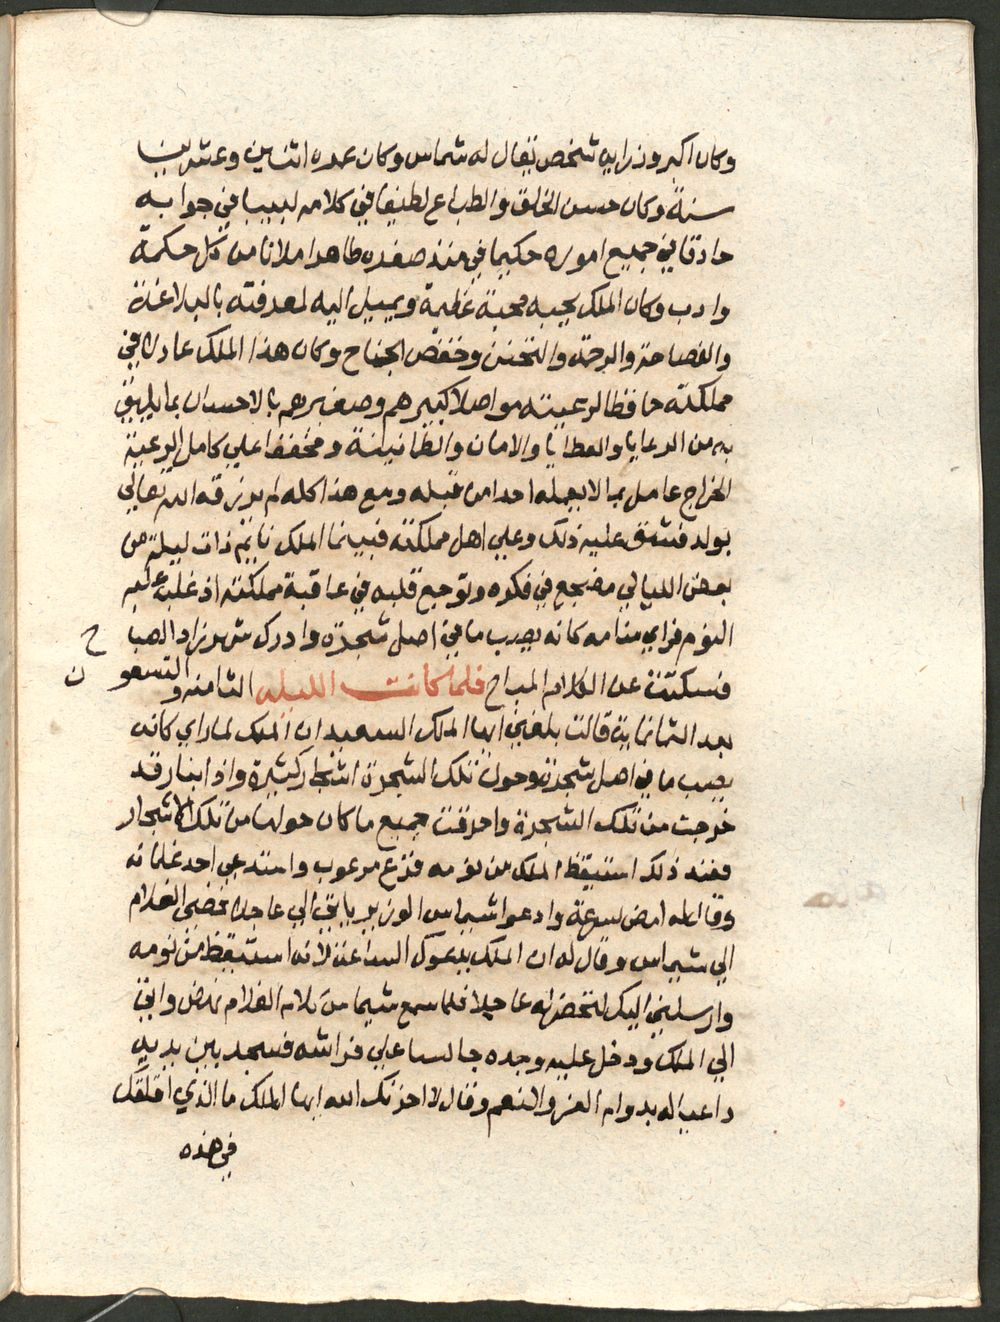 وكان اكبر وزرايه شخص يقال له شماس وكان عمره اثنين وعشرين
سنة وكان حسن الخلق والطباع لطيفا في كلامه لبيبا في جوابه
حادقا في جميع اموره حكيما في منذ صغره طاهرا ملانا من كل حكمة
وادب وكان الملك يحبه محبة عظيمة ويميل اليه لمعرفته بالبلاغة
والفصاحة والرحمة والتحنن وخفض الجناح وكان هذا الملك عادلا في
مملكته حافظا لرعيته مواصلا كبيرهم وصغيرهم بالاحسان بما يليق
به من الرعايا والعطايا والامان والطمانينة ومخففا علي كامل الرعية
الخراج عامل بما لا يعمله احدا من قبله ومع هذا كله لم يرزقه الله تعالي
بولد فشق عليه ذلك وعلي اهل مملكته فبينما الملك نايم ذات ليلة من
بعض الليالي مضجع في فكره وتوجع قلبه في عاقبة مملكته اذ غلب عليه
النوم فراي منامه كانه يصب ما في اصل شجرة وادرك شهرزاد الصبا ح
فسكتت عن الكلام المباح فلما كانت الليله الثامنه والتسعون
بعد الثمانماية قالت بلغني ايها الملك السعيد ان الملك لما راي كانه
يصب ما في اصل شجرة وحول تلك الشجرة اشجار كثيرة واذا بنار قد
خرجت من تلك الشجرة واحرقت جميع ما كان حولها من تلك الاشجار
فعند ذلك استيقظ الملك من نومه فزع مرعوب واستدعي احد غلمانه
وقال له امض بسرعة وادعوا شماس الوزير ياتي الي عاجلا فمضي الغلام
الي شيماس وقال له ان الملك يدعوك الساعة لانه استيقظ من نومه
وارسلني اليك لتحضر له عاجلا فلما سمع شيماس كلام الغلام نهض واتي
الي الملك ودخل عليه وجده جالسا علي فراشه فسجد بين يديه
داعيا له بدوام العز والنعم وقال لا احزنك الله ايها الملك ما الذي اقلقك
في هذه